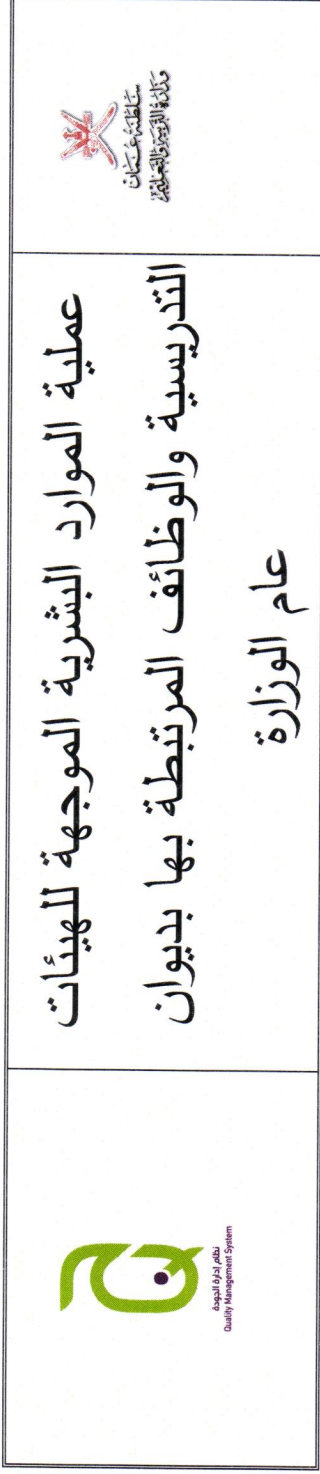 سلطنة عمان
وزارة التربية والتعليم
عملية الموارد البشرية الموجهة للهيئات
التدريسية والوظائف المرتبطة بها بديوان
عام الوزارة
نظام إدارة الجودة
Quality Management System